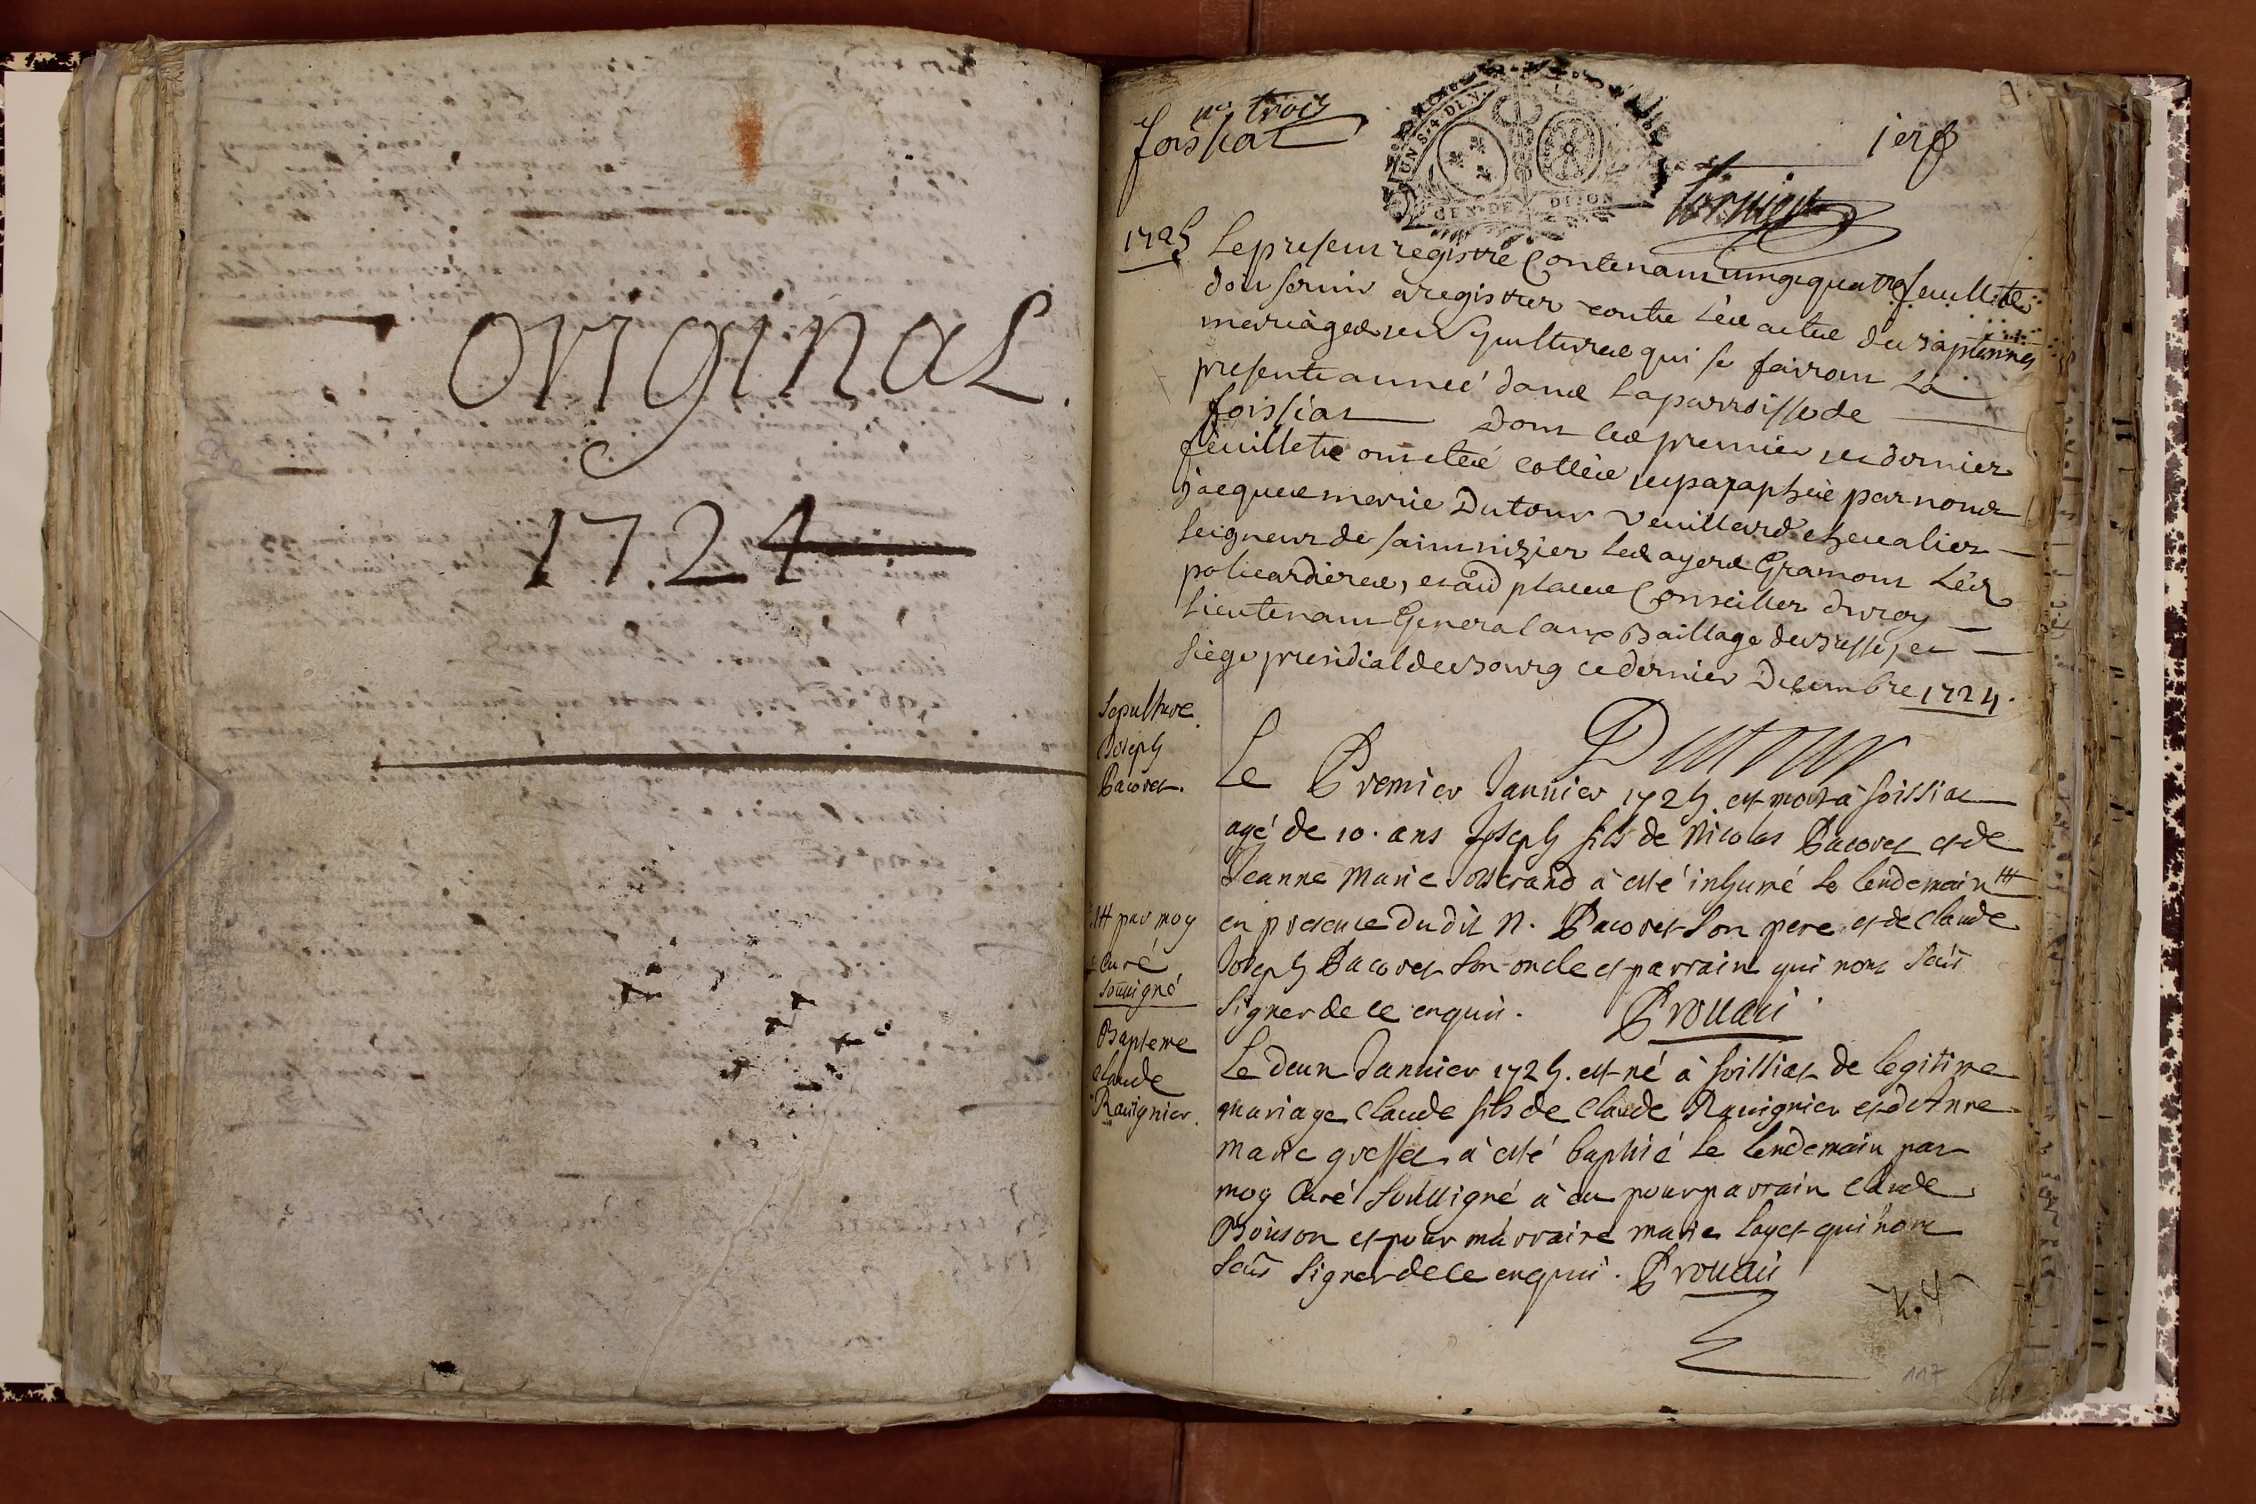 original.
1724
n.o trois
foissiat
1er f
UN S. 4. DEN.
GEN. DE DIJON
1725
Le present registre Contenant vingt quatre feuillets
doit servir a registrer toutes les actes de baptesmes
mariages et sepultures qui se fairont La
presente année dans la parroisse de
foissiat Dont les premier et dernier
feuillets ont esté cottés et paraphés par nous
Jacques marie Dutour Veuillard chevalier
seigneur de saint nizier Les ayera Gramont Les
policardieres, et aud places Conseiller du roy
Lieutenant General aux Baillage de bresse, et
siège presidial de bourg ce dernier Decembre 1724.
Dutour
Sepulture
Joseph
Bacoret.
Le Premier Janvier 1725. est mort à foissiat
agé de 10. ans Joseph fils de Nicolas Bacoret et de
Jeanne Marie Josserand à esté inhumé Le lendemain #
# par moy
curé
soussigné
en presence dudit N. Bacoret son pere et de claude
Joseph Bacoret son oncle et parrain qui nont sçus
signer de ce enquis. Prouaci
Bapteme
claude
Ravignier.
Le deux Janvier 1725. est né à foissiat de legitime
mariage claude fils de claude Ravignier et d'Anne
marie gresset à esté baptisé Le lendemain par
moy Curé soussigné à eu pour parrain claude
Boisson et pour marraine marie Layet qui nont
sçus signer de ce enquis. Prouaci
117